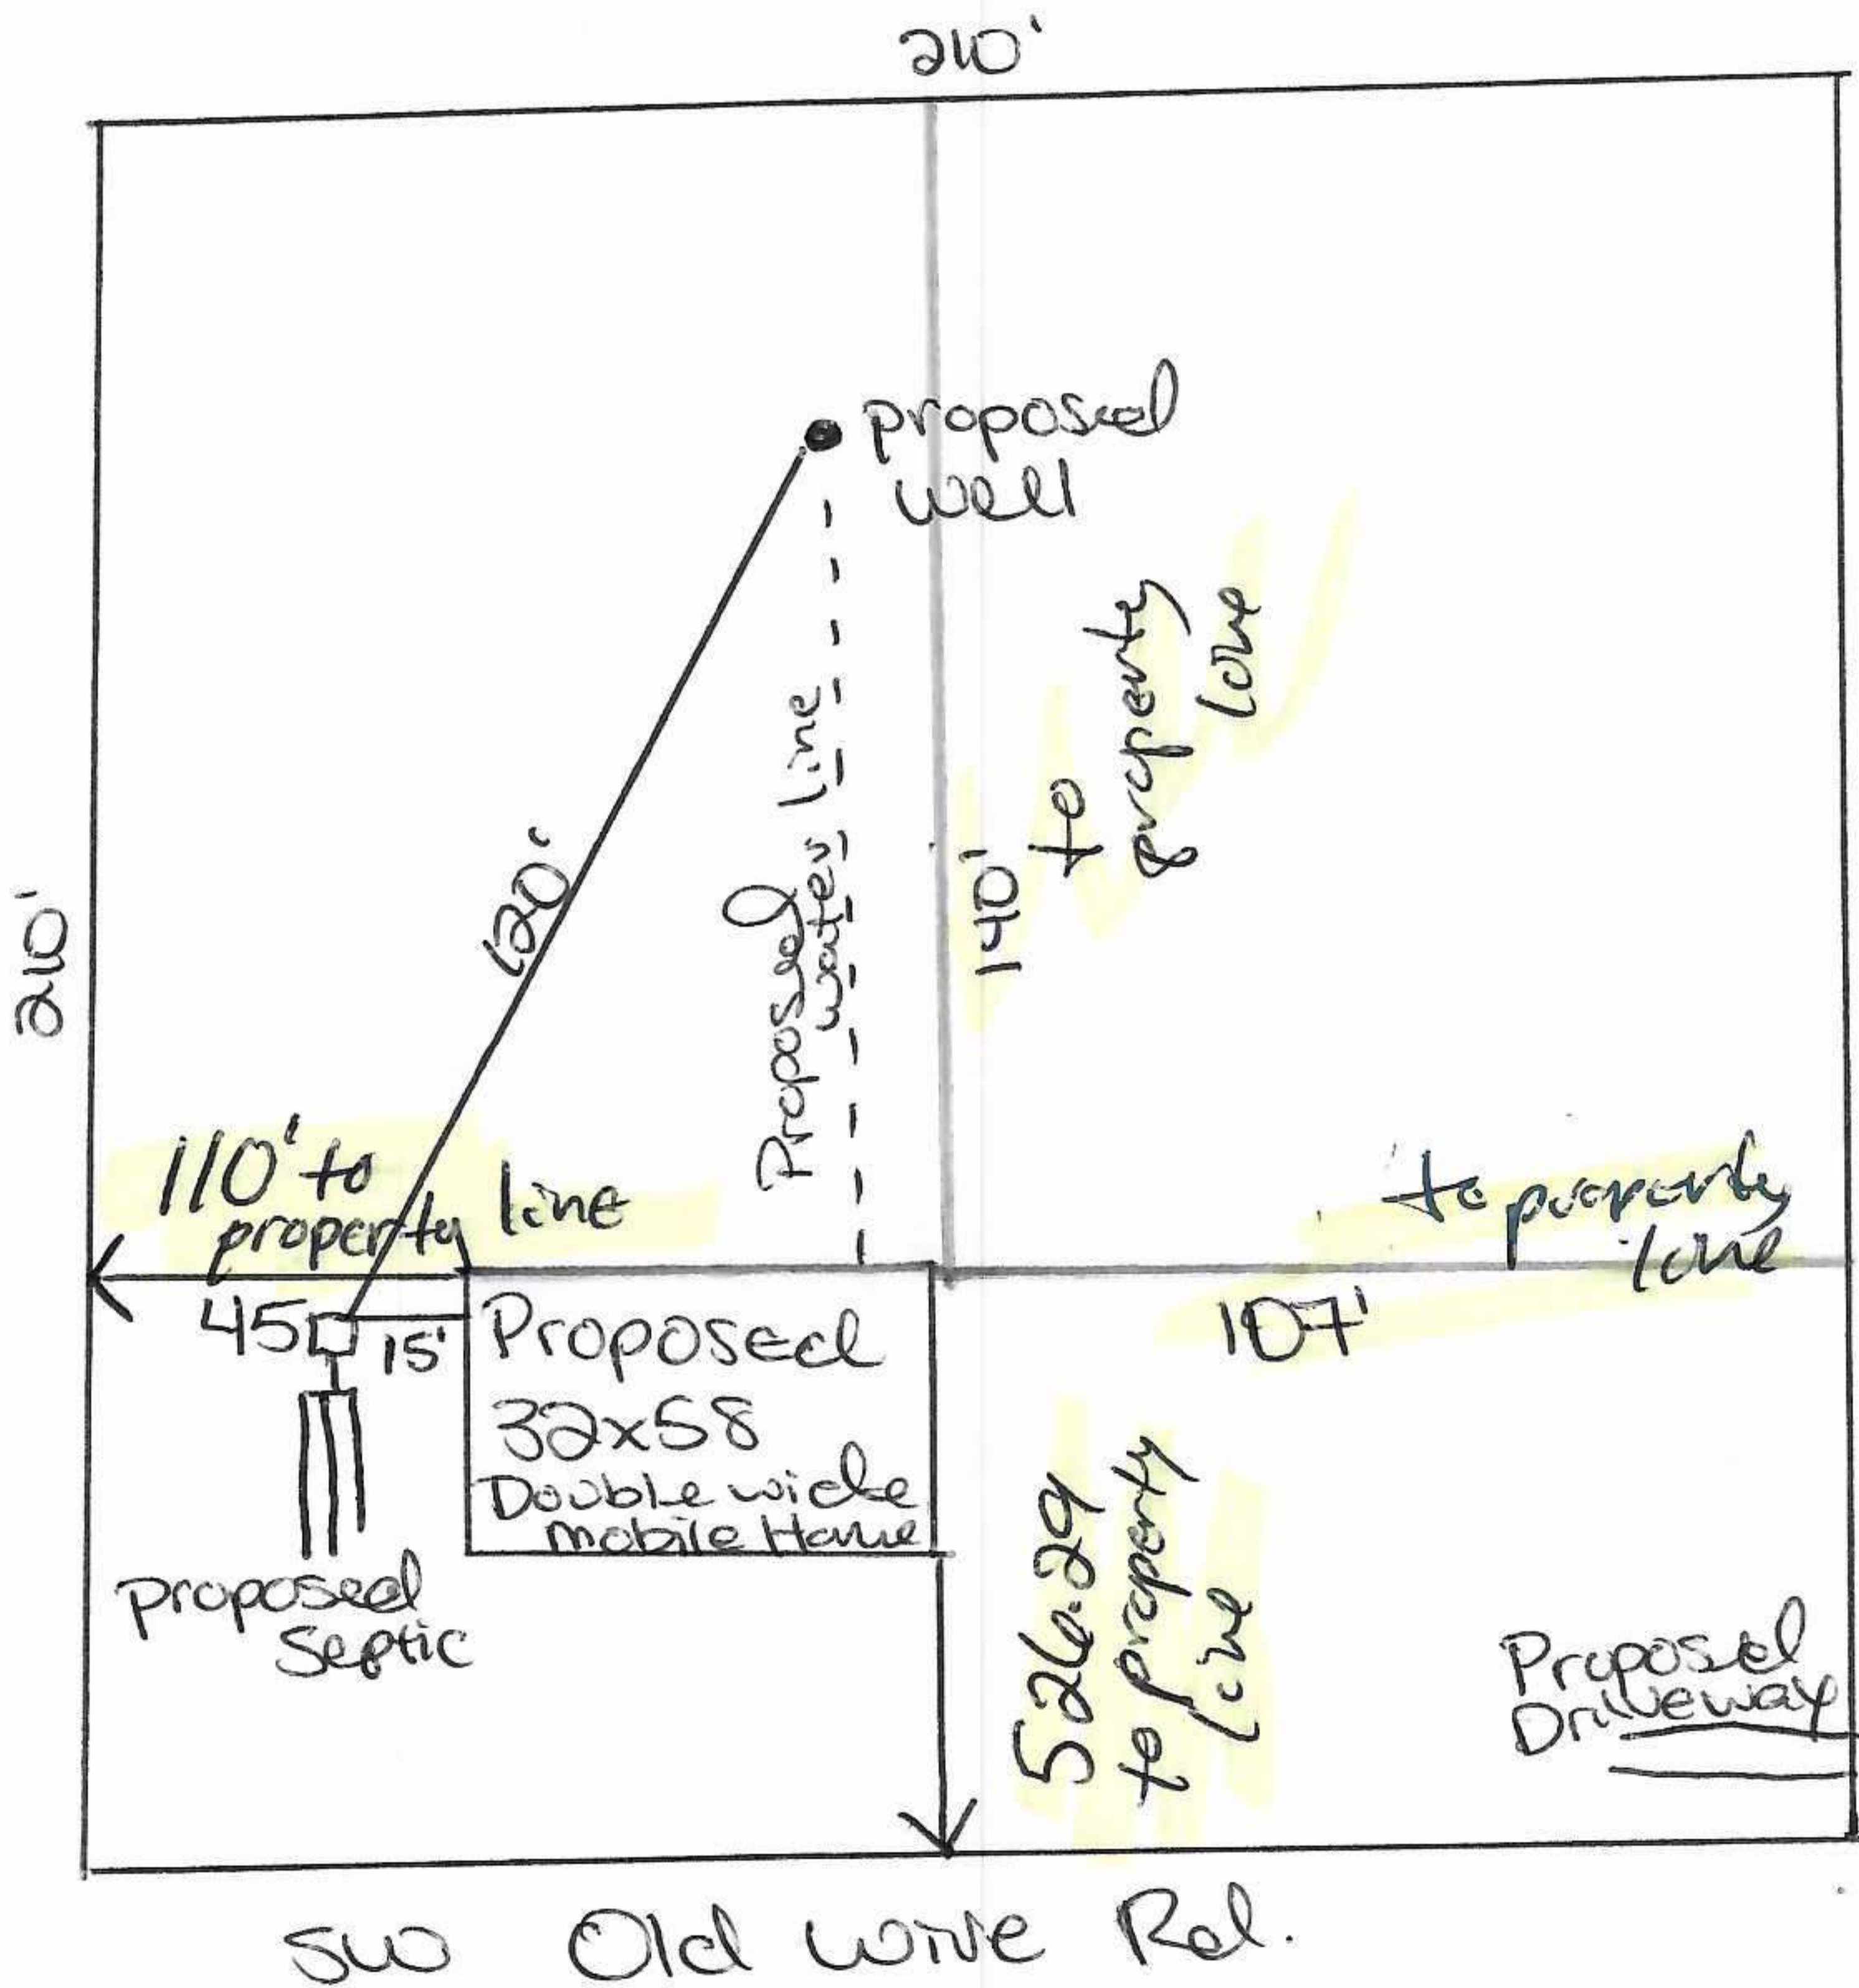 210'
proposed
well
to
property
line
140'
Proposed
water line
120'
210'
110' to
property line
to property
line
107'
45
15'
Proposed
32x58
Double wide
mobile Home
proposed
Septic
526.29
to property
line
Proposed
Driveway
SW Old Wire Rd.